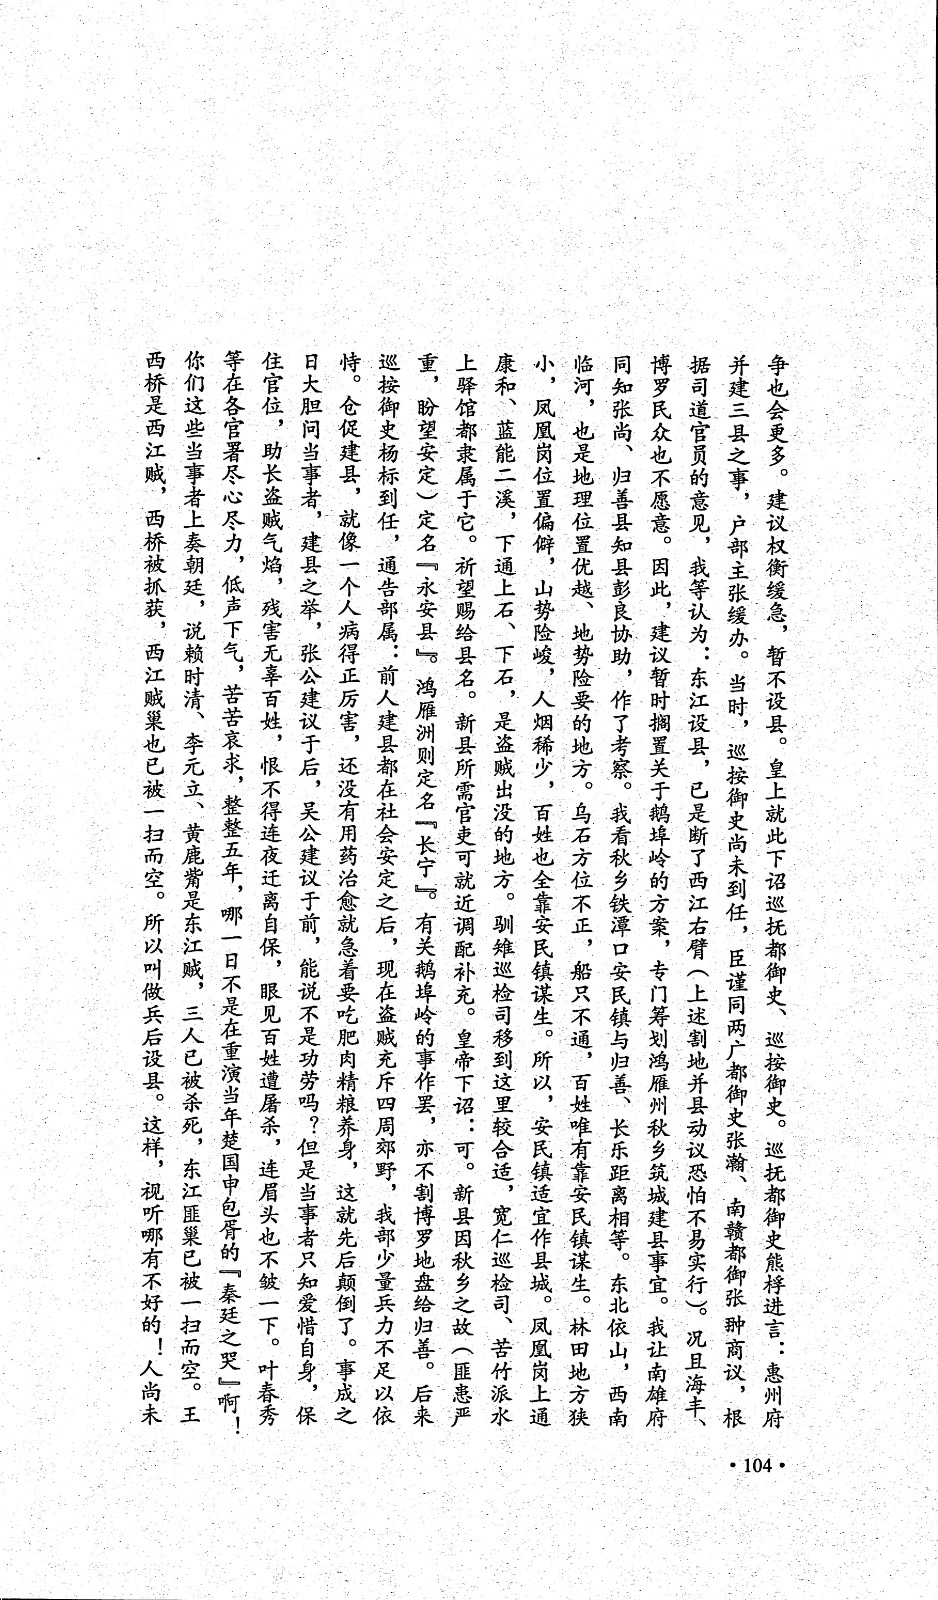 争也会更多。建议权衡缓急，暂不设县。皇上就此下诏巡抚都御史、巡按御史。巡抚都御史熊桴进言：惠州府
并建三县之事，户部主张缓办。当时，巡按御史尚未到任，臣谨同两广都御史张瀚、南赣都御张翀商议，根
据司道官员的意见，我等认为：东江设县，已是断了西江右臂（上述割地并县动议恐怕不易实行）。况且海丰、
博罗民众也不愿意。因此，建议暂时搁置关于鹅埠岭的方案，专门筹划鸿雁州秋乡筑城建县事宜。我让南雄府
同知张尚、归善县知县彭良协助，作了考察。我看秋乡铁潭口安民镇与归善、长乐距离相等。东北依山，西南
临河，也是地理位置优越、地势险要的地方。乌石方位不正，船只不通，百姓唯有靠安民镇谋生。林田地方狭
小，凤凰岗位置偏僻，山势险峻，人烟稀少，百姓也全靠安民镇谋生。所以，安民镇适宜作县城。凤凰岗上通
康和、蓝能二溪，下通上石、下石，是盗贼出没的地方。驯雉巡检司移到这里较合适，宽仁巡检司、苦竹派水
上驿馆都隶属于它。祈望赐给县名。新县所需官吏可就近调配补充。皇帝下诏：可。新县因秋乡之故（匪患严
重，盼望安定）定名『永安县』。鸿雁洲则定名『长宁』。有关鹅埠岭的事作罢，亦不割博罗地盘给归善。后来
巡按御史杨标到任，通告部属：前人建县都在社会安定之后，现在盗贼充斥四周郊野，我部少量兵力不足以依
恃。仓促建县，就像一个人病得正厉害，还没有用药治愈就急着要吃肥肉精粮养身，这就先后颠倒了。事成之
日大胆问当事者，建县之举，张公建议于后，吴公建议于前，能说不是功劳吗？但是当事者只知爱惜自身，保
住官位，助长盗贼气焰，残害无辜百姓，恨不得连夜迁离自保，眼见百姓遭屠杀，连眉头也不皱一下。叶春秀
等在各官署尽心尽力，低声下气，苦苦哀求，整整五年，哪一日不是在重演当年楚国申包胥的『秦廷之哭』啊！
你们这些当事者上奏朝廷，说赖时清、李元立、黄鹿觜是东江贼，三人已被杀死，东江匪巢已被一扫而空。王
西桥是西江贼，西桥被抓获，西江贼巢也已被一扫而空。所以叫做兵后设县。这样，视听哪有不好的！人尚未
·104·